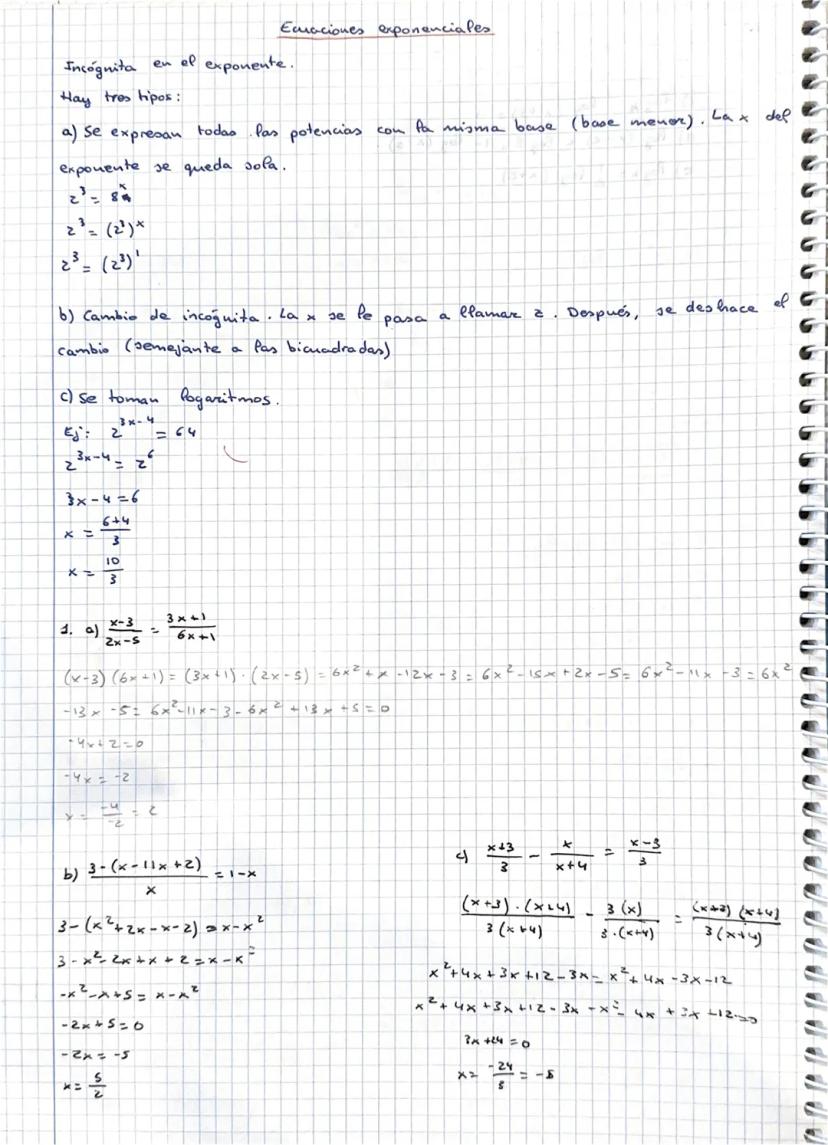 Ecuaciones exponenciales
Incógnita en el exponente.
Hay tres tipos:
a) Se expresan todas las potencias con la misma base (base menor). La x del
exponente se queda sola.
2³ = 8ˣ
2³ = (2³)ˣ
2³ = (2³)¹
b) Cambio de incógnita. La x se le pasa a llamar z. Después, se deshace el
cambio (semejante a las bicuadradas)
c) Se toman logaritmos.
Ej: 2^(3x-4) = 64
2^(3x-4) = 2⁶
3x - 4 = 6
x = (6+4)/3
x = 10/3
1. a) (x-3)/(2x-5) = (3x+1)/(6x+1)
(x-3)(6x+1) = (3x+1)·(2x-5) = 6x² + x - 12x - 3 = 6x² - 15x + 2x - 5 = 6x² - 11x - 3 = 6x²
-13x - 5 = 6x² - 11x - 3 - 6x² + 13x + 5 = 0
-4x + 2 = 0
-4x = -2
x = -4/-2 = 2
b) (3-(x-11x+2))/x = 1-x
3-(x²+2x-x-2) = x-x²
3-x²-2x+x+2 = x-x²
-x²-x+5 = x-x²
-2x+5 = 0
-2x = -5
x = 5/2
c) (x+3)/3 - x/(x+4) = (x-3)/3
((x+3)·(x+4))/(3(x+4)) - (3(x))/(3·(x+4)) = ((x+3)(x+4))/(3(x+4))
x²+4x+3x+12-3x = x²+4x-3x-12
x²+4x+3x+12-3x-x²-4x+3x+12=0
3x+24 = 0
x = -24/3 = -8